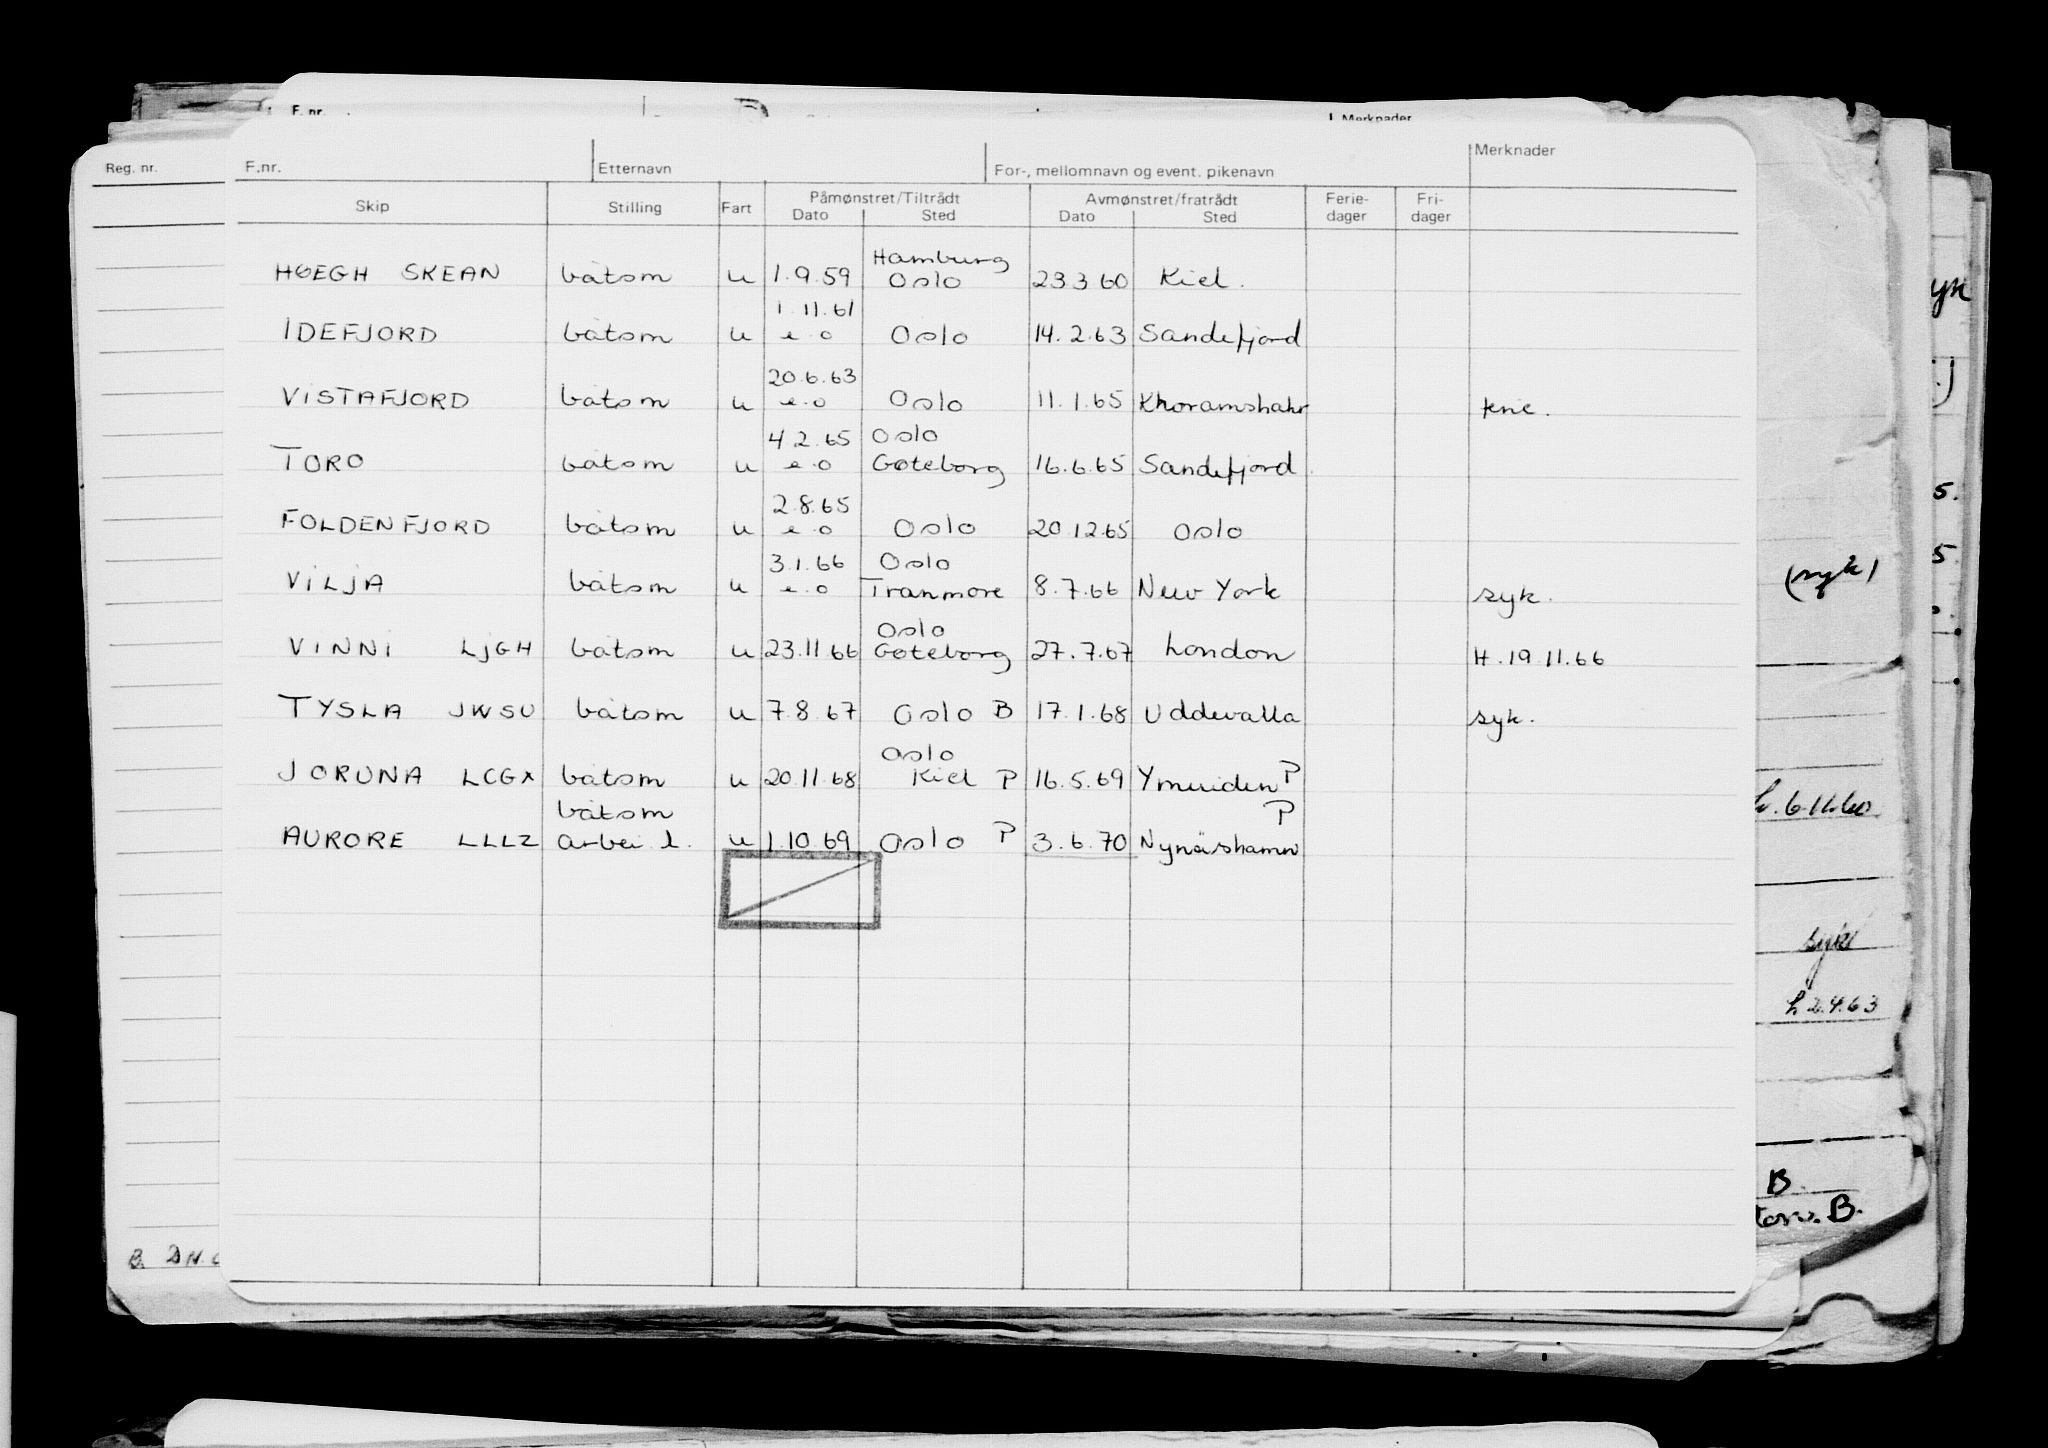 F. nr. Merknader
Reg. nr. F.nr. Etternavn For-, mellomnavn og event. pikenavn Merknader
Skip Stilling Fart Påmønstret/Tiltrådt Avmønstret/fratrådt Ferie- Fri-
Dato Sted Dato Sted dager dager
Hamburg
HØEGH SKEAN båtsm u 1.9.59 Oslo 23.3.60 Kiel.
1.11.61
IDEFJORD båtsm u e.o Oslo 14.2.63 Sandefjord
20.6.63
VISTAFJORD båtsm u e.o Oslo 11.1.65 Khoramshahr ferie.
4.2.65 Oslo
TORO båtsm u e.o Gøteborg 16.6.65 Sandefjord
2.8.65
FOLDENFJORD båtsm u e.o Oslo 20.12.65 Oslo
3.1.66 Oslo
VILJA båtsm u e.o Tranmore 8.7.66 New York syk.
Oslo
VINNI LJGH båtsm u 23.11.66 Gøteborg 27.7.67 London H.19.11.66
TYSLA JWSU båtsm u 7.8.67 Oslo B 17.1.68 Uddevalla syk.
Oslo
JORUNA LCGX båtsm u 20.11.68 Kiel P 16.5.69 Ymuiden P
båtsm P
AURORE LLLZ arbei l. u 1.10.69 Oslo P 3.6.70 Nynäshamn
(syk)
syk
h 2.4.63
B.
B.